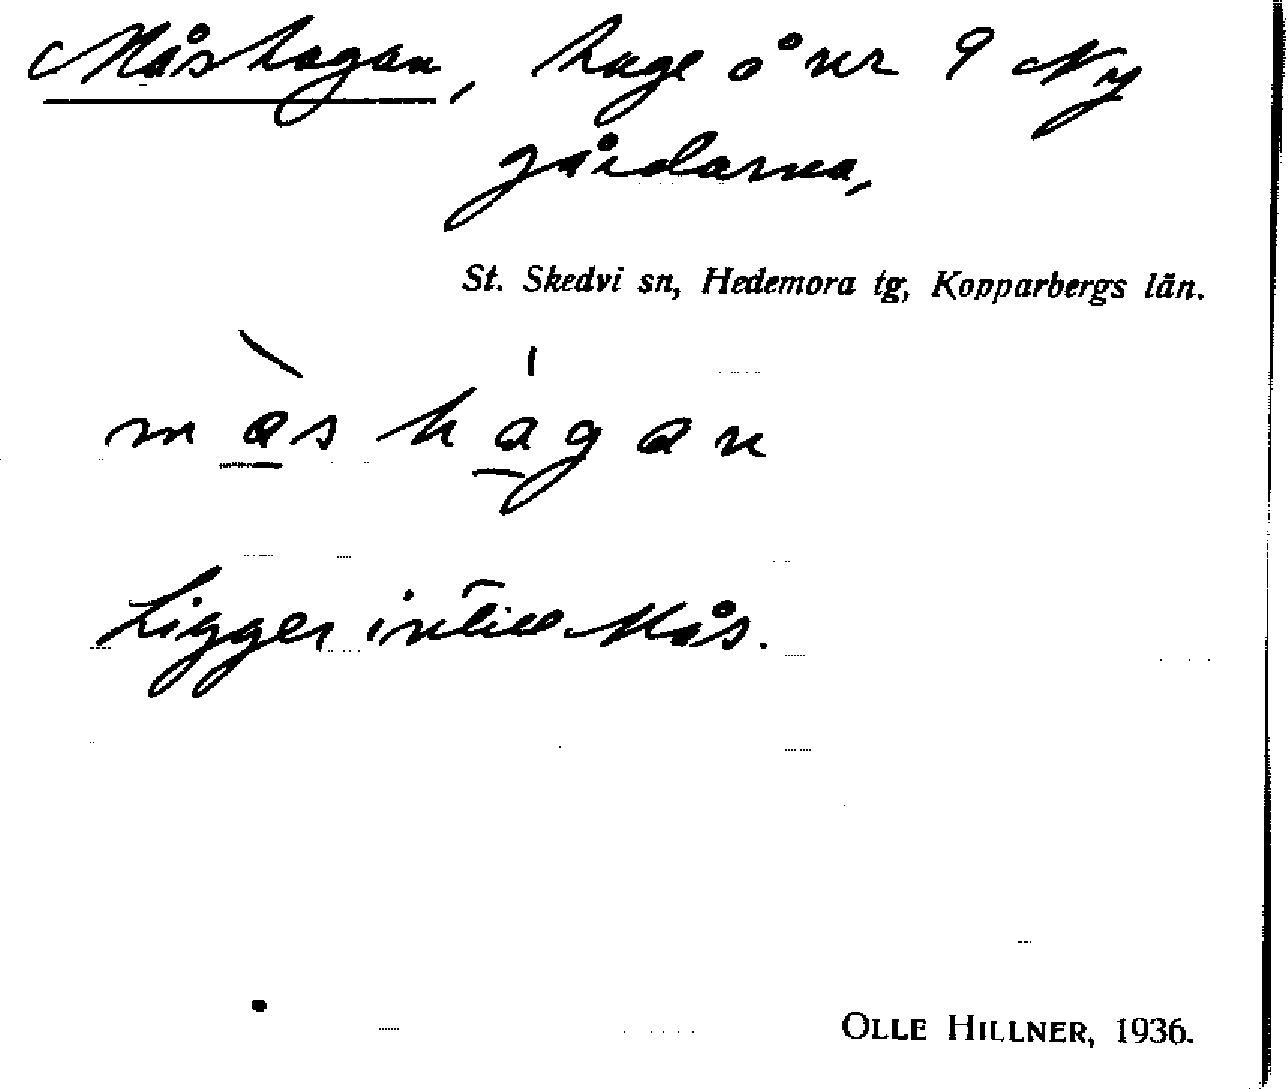 Måshagan, hage å nr 9 Ny
gårdarna,
St. Skedvi sn, Hedemora tg, Kopparbergs län.
mas hagan
Ligger intill Mås.
OLLE HILLNER, 1936.